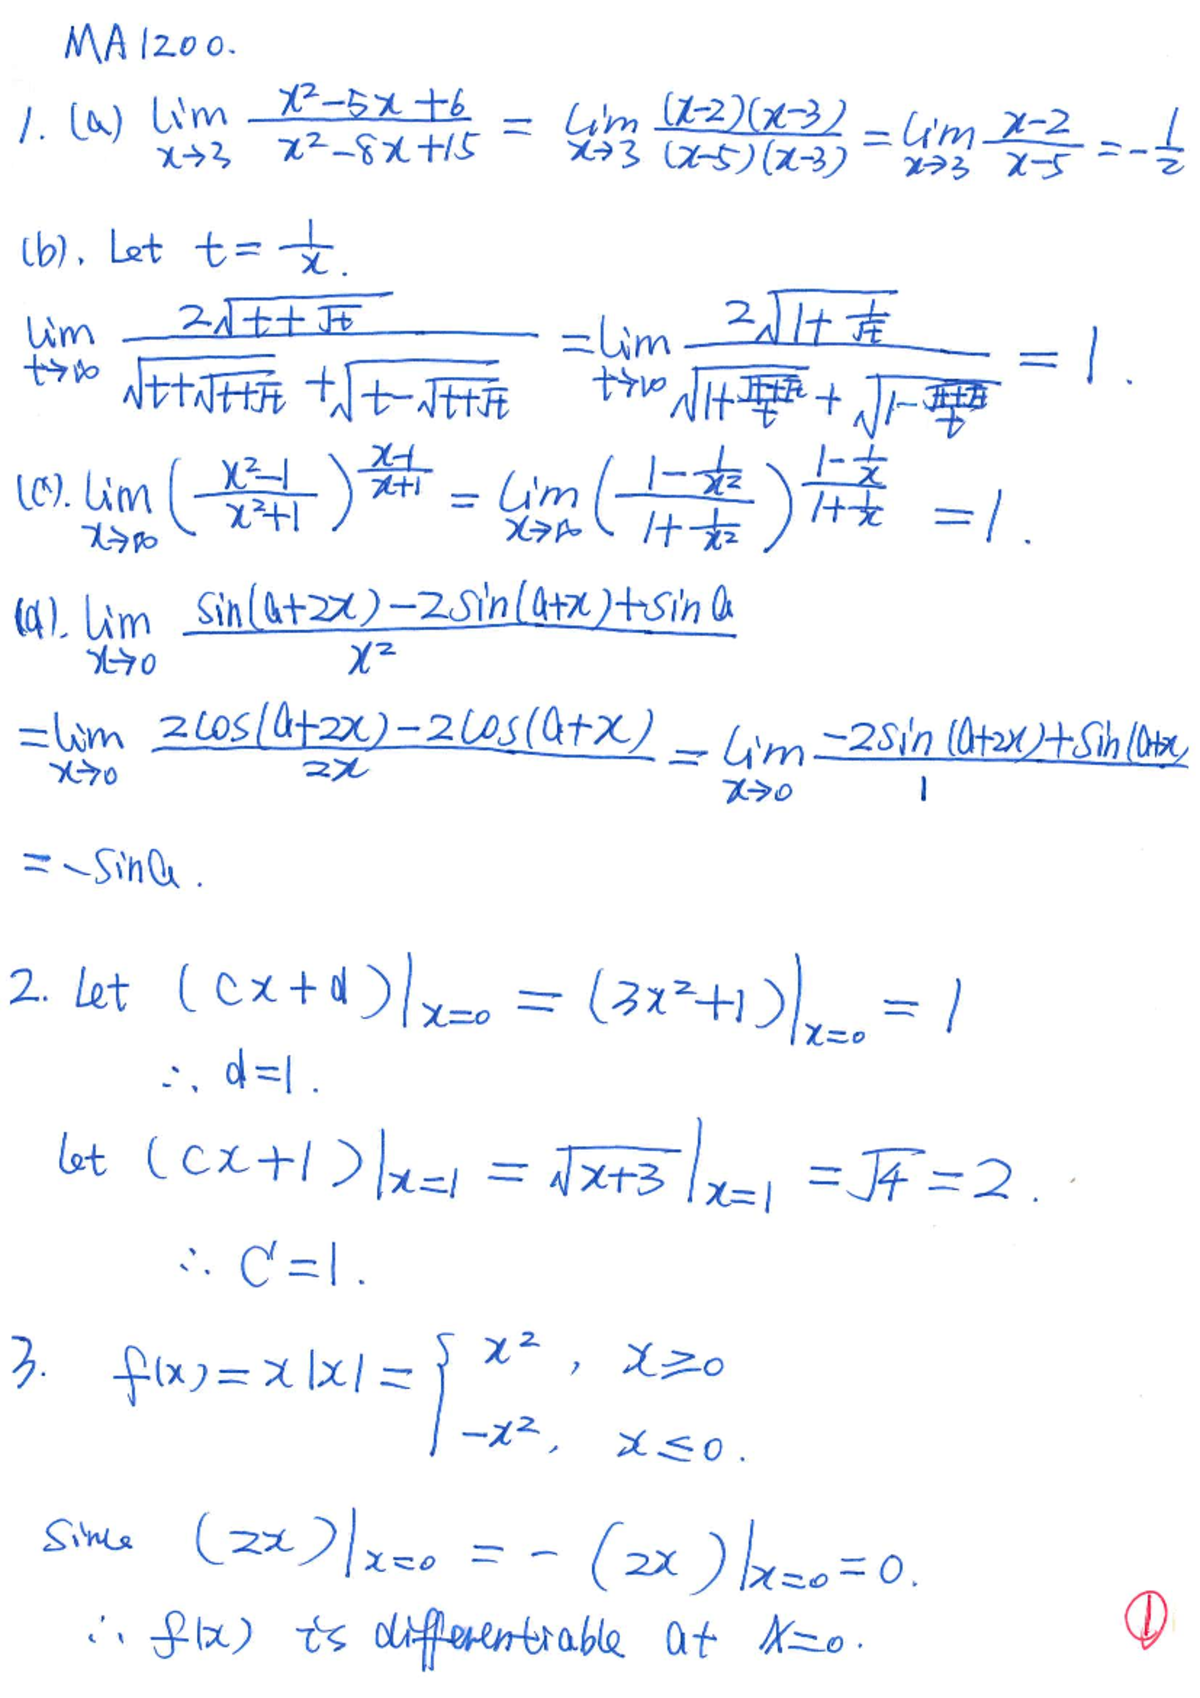 MA1200.
1. (a) lim x→3 (x²-5x+6)/(x²-8x+15) = lim x→3 ((x-2)(x-3))/((x-5)(x-3)) = lim x→3 (x-2)/(x-5) = -1/2
(b). Let t = 1/x.
lim t→∞ (2√(t+√t))/(√(t+√(t+√t)) + √(t-√(t+√t))) = lim t→∞ (2√(1+1/√t))/(√(1+√(t+√t)/t) + √(1-√(t+√t)/t)) = 1.
(c). lim x→∞ ((x²-1)/(x²+1))^((x-1)/(x+1)) = lim x→∞ ((1-1/x²)/(1+1/x²))^((1-1/x)/(1+1/x)) = 1.
(d). lim x→0 (sin(a+2x)-2sin(a+x)+sin a)/x²
= lim x→0 (2cos(a+2x)-2cos(a+x))/2x = lim x→0 (-2sin(a+2x)+sin(a+x))/1
= -sin a.
2. Let (cx+d)|x=0 = (3x²+1)|x=0 = 1
∴ d=1.
let (cx+1)|x=1 = √(x+3)|x=1 = √4 = 2.
∴ C=1.
3. f(x) = x|x| = { x², x≥0
-x², x≤0.
Since (2x)|x=0 = -(2x)|x=0 = 0.
∴ f(x) is differentiable at x=0.
①